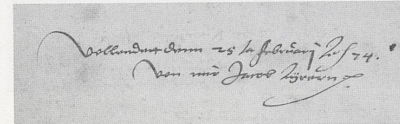 Vollendet denn 25 ten februarij 1574.
Von mir Jacob